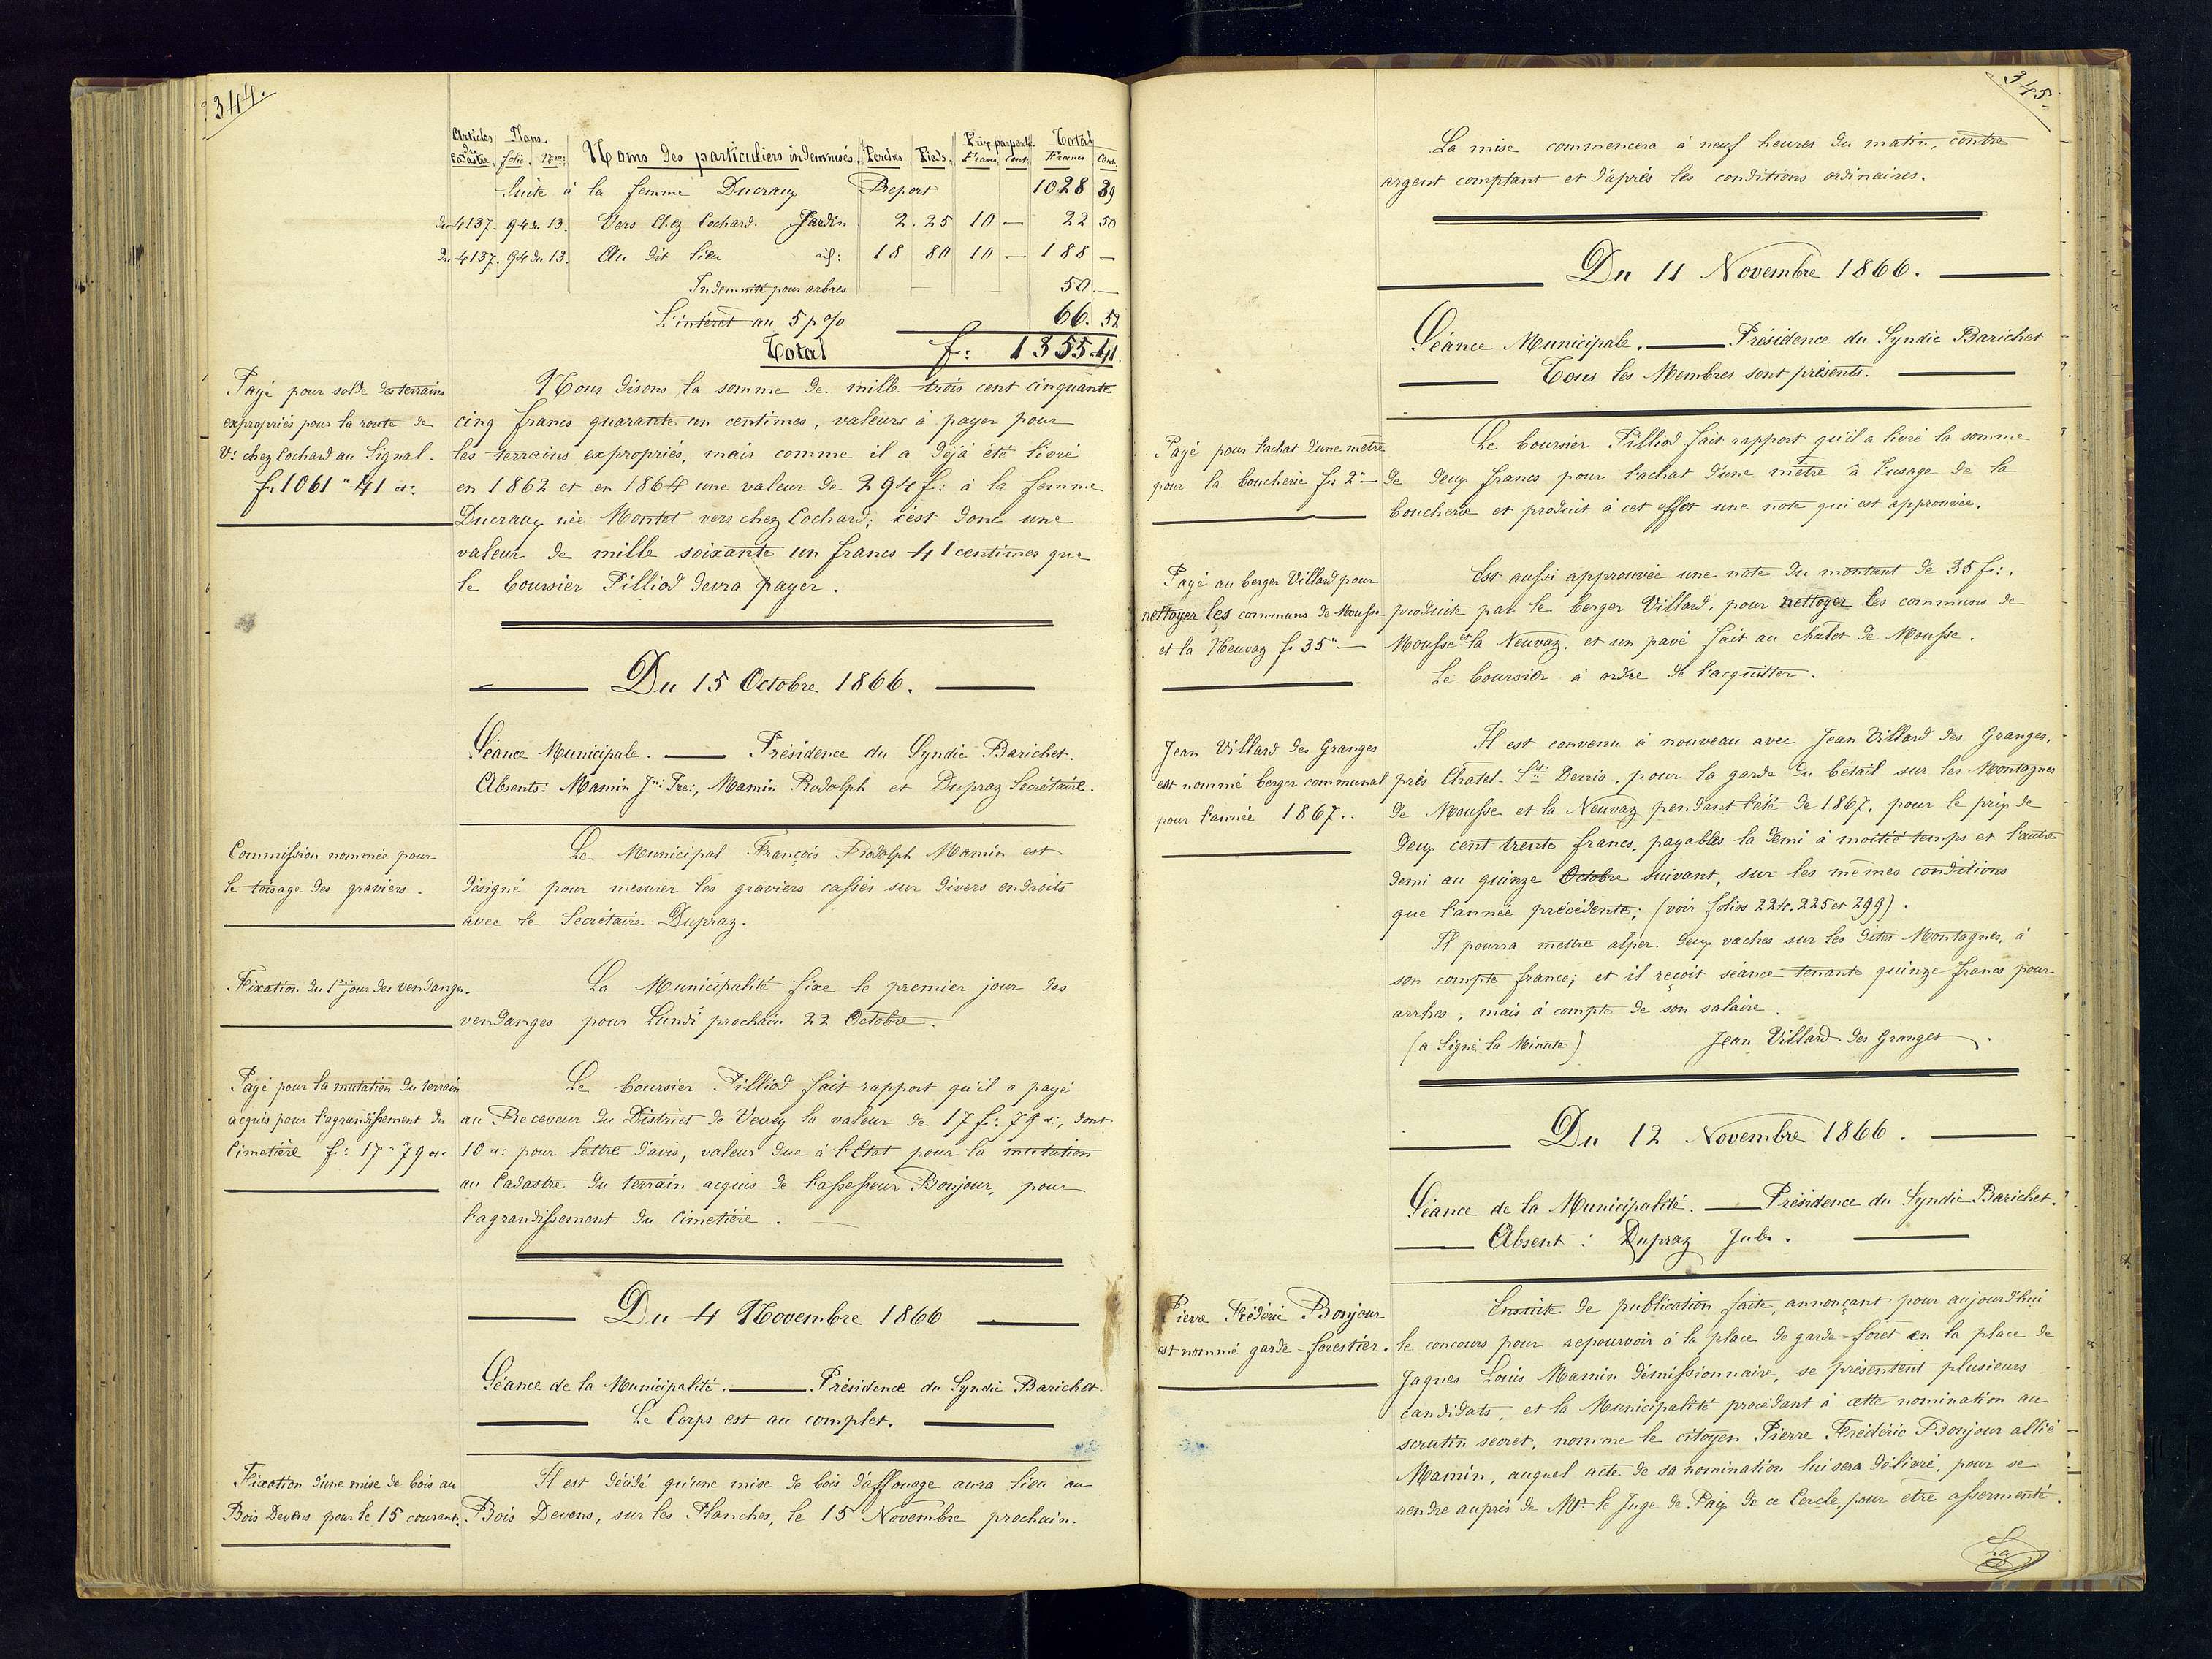 344.
Articles du Cadastre. Plans. folio. Nos. Noms des particuliers indemnisés. Perches Pieds. Prix par perche Francs Cent. Total Francs Cent.
Suite à la femme Ducraux Report 1028 39
du 4137. 94 du 13. Vers Chez Cochard. Jardin 2. 25 10 — 22 50
du 4137. 94 du 13. Au dit lieu id: 18 80 10 — 188 —
Indemnité pour arbres — — 50. —
L'intérêt au 5 p% 66. 52
Total f: 1355.41.
Payé pour solde des terrains
expropriés pour la route de
Vs chez Cochard au Signal.
f. 1061 " 41 ct.
Nous disons la somme de mille trois cent cinquante
cinq francs quarante un centimes, valeurs à payer pour
les terrains expropriés, mais comme il a déjà été livré
en 1862 et en 1864 une valeur de 294 f: à la femme
Ducraux née Montet vers chez Cochard; c'est donc une
valeur de mille soixante un francs 41 centimes que
le boursier Pilliod devra payer.
Du 15 Octobre 1866.
Séance Municipale. — Présidence du Syndic Barichet.
Absents: Mamin Jn: Fre:, Mamin Rodolph et Dupraz Secrétaire.
Commission nommée pour
le toisage des graviers.
Le Municipal François Rodolph Mamin est
désigné pour mesurer les graviers cassés sur divers endroits
avec le Secrétaire Dupraz.
Fixation du 1er jour des vendanges.
La Municipalité fixe le premier jour des
vendanges pour Lundi prochain 22 Octobre.
Payé pour la mutation du terrain
acquis pour l'agrandissement du
Cimetière f: 17 " 79 ct.
Le boursier Pilliod fait rapport qu'il a payé
au Receveur du District de Vevey la valeur de 17 f: 79 ct:, dont
10 ct: pour lettre d'avis, valeur due à l'Etat pour la mutation
au Cadastre du terrain acquis de l'assesseur Bonjour, pour
l'agrandissement du Cimetière.
Du 4 Novembre 1866
Séance de la Municipalité. — Présidence du Syndic Barichet.
Le Corps est au complet.
Fixation d'une mise de bois au
Bois Devens pour le 15 courant.
Il est décidé qu'une mise de bois d'affouage aura lieu au
Bois Devens, sur les Planches, le 15 Novembre prochain.
345.
La mise commencera à neuf heures du matin, contre
argent comptant et d'après les conditions ordinaires.
Du 11 Novembre 1866.
Séance Municipale. — Présidence du Syndic Barichet
Tous les Membres sont présents.
Payé pour l'achat d'une mètre
pour la boucherie f: 2 " —
Le boursier Pilliod fait rapport qu'il a livré la somme
de deux francs pour l'achat d'une mètre à l'usage de la
boucherie et produit à cet effet une note qui est approuvée.
Payé au berger Villard pour
nettoyer les communs de Mousse
et la Neuvaz f. 35 " —
Est aussi approuvée une note du montant de 35 f:,
produite par le berger Villard, pour nettoyer les communs de
Mousse et la Neuvaz. et un pavé fait au chalet de Mousse.
Le boursier à ordre de l'acquitter.
Jean Villard des Granges
est nommé berger communal
pour l'année 1867.
Il est convenu à nouveau avec Jean Villard des Granges,
près Chatel-St Denis, pour la garde du bétail sur les Montagnes
de Mousse et la Neuvaz pendant l'été de 1867. pour le prix de
deux cent trente francs, payables la demi à moitié temps et l'autre
demi au quinze Octobre suivant, sur les mêmes conditions
que l'année précédente; (voir folios 224. 225 et 299).
Il pourra mettre alper deux vaches sur les dites Montagnes, à
son compte franco; et il reçoit séance tenante quinze francs pour
arrhes, mais à compte de son salaire.
(a Signé la Minute) Jean Villard des Granges.
Du 12 Novembre 1866.
Séance de la Municipalité. — Présidence du Syndic Barichet.
Absent: Dupraz Jules.
Pierre Frédéric Bonjour
est nommé garde-forestier.
Ensuite de publication faite, annonçant pour aujourd'hui
le concours pour repourvoir à la place de garde-forêt en la place de
Jaques Louis Mamin démissionnaire, se présentent plusieurs
candidats, et la Municipalité procédant à cette nomination au
scrutin secret, nomme le citoyen Pierre Frédéric Bonjour allié
Mamin, auquel acte de sa nomination lui sera délivré, pour se
rendre auprès de Mr le Juge de Paix de ce Cercle, pour être assermenté.
La